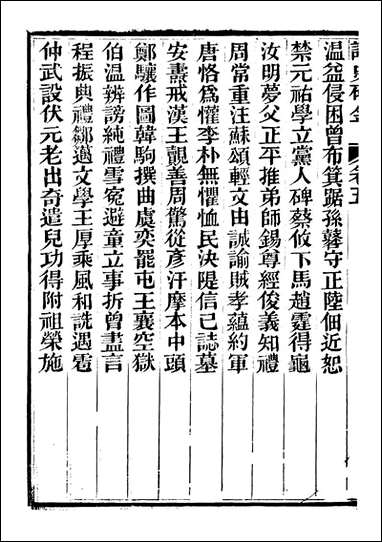 卷五
溫益侵困曾布箕踞孫鼛守正陸佃近恕
禁元祐學立黨人碑蔡攸下馬趙霆得龜
汝明夢父正平推弟師錫尊經俊義知禮
周常重注蘇頌輕文由誠諭賊孝蘊約軍
唐恪爲懽李朴無懼恤民決隄信己誌墓
安燾戒漢王覿善周驚從彥汗摩本中頭
鄭驤作圖韓駒撰曲虞奕罷屯王襄空獄
伯溫辨謗純禮雪冤避童立事折曾盡言
程振典禮鄒邁文學王厚乘風和詵遇雹
仲武設伏元老出奇遣兒功得附祖榮施